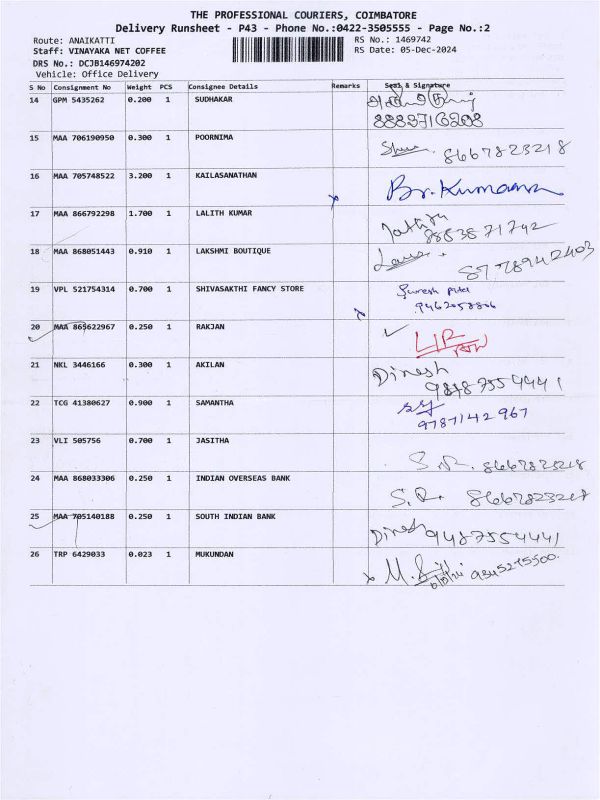 THE PROFESSIONAL COURIERS, COIMBATORE
Delivery Runsheet - P43 - Phone No.:0422-3505555 - Page No.:2
Route: ANAIKATTI
RS No.: 1469742
Staff: VINAYAKA NET COFFEE
RS Date: 05-Dec-2024
DRS No.: DCJB146974202
Vehicle: Office Delivery
S No Consignment No Weight PCS Consignee Details Remarks Seal & Signature
14 GPM 5435262 0.200 1 SUDHAKAR
8883716208
15 MAA 706190950 0.300 1 POORNIMA 8667823218
16 MAA 705748522 3.200 1 KAILASANATHAN Br. Kumaran
17 MAA 866792298 1.700 1 LALITH KUMAR
8883871742
18 MAA 868051443 0.910 1 LAKSHMI BOUTIQUE
8778942403
19 VPL 521754314 0.700 1 SHIVASAKTHI FANCY STORE Suresh
9462058806
20 MAA 865622967 0.250 1 RAKJAN
21 NKL 3446166 0.300 1 AKILAN Dinesh
9487554441
22 TCG 41380627 0.900 1 SAMANTHA
9787142967
23 VLI 505756 0.700 1 JASITHA S.R. 8667823218
24 MAA 868033306 0.250 1 INDIAN OVERSEAS BANK S.R. 8667823218
25 MAA 705140188 0.250 1 SOUTH INDIAN BANK Dinesh 9487554441
26 TRP 6429033 0.023 1 MUKUNDAN 9345275500